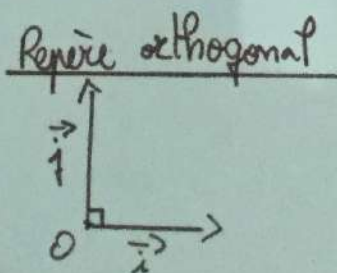 Repère orthogonal
j⃗
O
i⃗